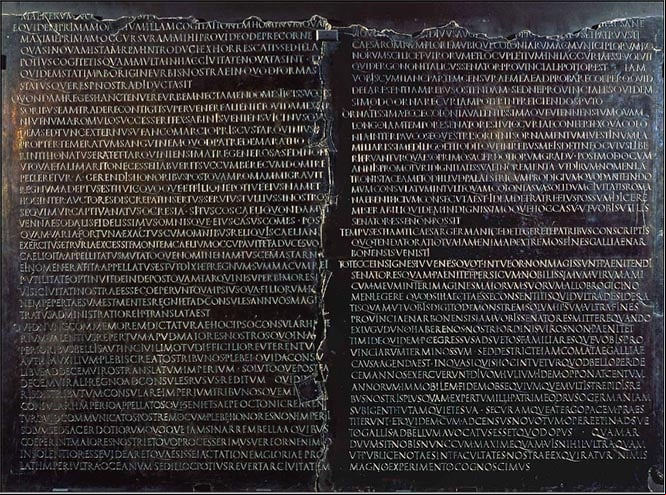 MAE RERVM
EQVIDEM PRIMAM OMNIVM ILLAM COGITATIONEM HOMINVM QVAM
MAXIME PRIMAM OCCVRSVRAM MIHI PROVIDEO DEPRECOR NE
QVASI NOVAM ISTAM REM INTRODVCI EXHORRESCATIS SED ILLA
POTIVS COGITETIS QVAM MVLTA IN HAC CIVITATE NOVATA SINT ET
QVIDEM STATIM AB ORIGINE VRBIS NOSTRAE IN QVOD FORMAS
STATVSQVE RES P NOSTRA DIDVCTA SIT
QVONDAM REGES HANC TENVERE VRBEM NEC TAMEN DOMESTICIS SVCCES
SORIBVS EAM TRADERE CONTIGIT SVPERVENERE ALIENI ET QVIDAM EXTER
NI VT NVMA ROMVLO SVCCESSERIT EX SABINIS VENIENS VICINVS QVI
DEM SED TVNC EXTERNVS VT ANCO MARCIO PRISCVS TARQVINIVS
PROPTER TEMERATVM SANGVINEM QVOD PATRE DEMARATHO
RINTHIO NATVS ERAT ET TARQVINIENSI MATRE GENEROSA SED INOPI
VT QVAE TALI MARITO NECESSE HABVERIT SVCCVMBERE CVM DOMI RE
PELLERETVR A GERENDIS HONORIBVS POSTQVAM ROMAM MIGRAVIT
REGNVM ADEPTVS EST HVIC QVOQVE ET FILIO NEPOTIVE EIVS NAM ET
HOC INTER AVCTORES DISCREPAT INSERTVS SERVIVS TVLLIVS SI NOSTROS
SEQVIMVR CAPTIVA NATVS OCRESIA SI TVSCOS CAELI QVONDAM VI
VENNAE SODALIS FIDELISSIMVS OMNISQVE EIVS CASVS COMES POST
QVAM VARIA FORTVNA EXACTVS CVM OMNIBVS RELIQVIS CAELIANI
EXERCITVS ETRVRIA EXCESSIT MONTEM CAELIVM OCCVPAVIT ET A DVCE SVO
CAELIO ITA APPELLITATVS MVTATOQVE NOMINE NAM TVSCE MASTARNA
EI NOMEN ERAT ITA APPELLATVS EST VT DIXI ET REGNVM SVMMA CVM REI
P VTILITATE OPTINVIT DEINDE POSTQVAM TARQVINI SVPERBI MORES IN
VISI CIVITATI NOSTRAE ESSE COEPERVNT QVA IPSIVS QVA FILIORVM
NEMPE PERTAESVM EST MENTES REGNI ET AD CONSVLES ANNVOS MAGIS
TRATVS ADMINISTRATIO REI P TRANSLATA EST
QVID NVNC COMMEMOREM DICTATVRAE HOC IPSO CONSVLARI IMPE
RIVM VALENTIVS REPERTVM APVD MAIORES NOSTROS QVO IN AS
PERIORIBVS BELLIS AVT IN CIVILI MOTV DIFFICILIORE VTERENTVR
AVT IN AVXILIVM PLEBIS CREATOS TRIBVNOS PLEBEI QVID A CONSV
LIBVS AD DECEMVIROS TRANSLATVM IMPERIVM SOLVTOQVE POSTEA
DECEMVIRALI REGNO AD CONSVLES RVSVS REDITVM QVID
RIS DISTRIBVTVM CONSVLARE IMPERIVM TRIBVNOSQVE
CONSVLARI IMPERIO APPELLATOS QVI SENI ET SAEPE OCTONI CREAREN
TVR QVID COMMVNICATOS POSTREMO CVM PLEBE HONORES NON IMPERI
SOLVM SED SACERDOTIORVM QVOQVE IAM SI NARREM BELLA A QVIBVS
COEPERINT MAIORES NOSTRI ET QVO PROCESSERIMVS VEREOR NE NIMIO
INSOLENTIOR ESSE VIDEAR ET QVAESISSE IACTATIONEM GLORIAE PRO
LATI IMPERI VLTRA OCEANVM SED ILLOC POTIVS REVERTAR CIVITATEM
SANE
CAESAR OMNEM FLOREM VBIQVE COLONIARVM AC MVNICIPIORVM BO
NORVM SCILICET VIRORVM ET LOCVPLETIVM IN HAC CVRIA ESSE VOLVIT
QVID ERGO NON ITALICVS SENATOR PROVINCIALI POTIOR EST IAM
VOBIS CVM HANC PARTEM CENSVRAE MEAE ADPROBARE COEPERO QVID
DE EA RE SENTIAM REBVS OSTENDAM SED NE PROVINCIALES QVIDEM
SI MODO ORNARE CVRIAM POTERINT REICIENDOS PVTO
ORNATISSIMA ECCE COLONIA VALENTISSIMAQVE VIENNENSIVM QVAM
LONGO IAM TEMPORE SENATORES HVIC CVRIAE CONFERT EX QVA COLO
NIA INTER PAVCOS EQVESTRIS ORDINIS ORNAMENTVM L VESTINVM FA
MILIARISSIME DILIGO ET HODIEQVE IN REBVS MEIS DETINEO CVIVS LIBE
RI FRVANTVR QVAESO PRIMO SACERDOTIORVM GRADV POST MODO CVM
ANNIS PROMOTVRI DIGNITATIS SVAE INCREMENTA VT DIRVM NOMEN LA
TRONIS TACEAM ET ODI ILLVD PALAESTRICVM PRODIGIVM QVOD ANTE IN DO
MVM CONSVLATVM INTVLIT QVAM COLONIA SVA SOLIDVM CIVITATIS ROMA
NAE BENIFICIVM CONSECVTA EST IDEM DE FRATRE EIVS POSSVM DICERE
MISERABILI QVIDEM INDIGNISSIMOQVE HOC CASV VT VOBIS VTILIS
SENATOR ESSE NON POSSIT
TEMPVS EST IAM TI CAESAR GERMANICE DETEGERE TE PATRIBVS CONSCRIPTIS
QVO TENDAT ORATIO TVA IAM ENIM AD EXTREMOS FINES GALLIAE NAR
BONENSIS VENISTI
TOT ECCE INSIGNES IVVENES QVOT INTVEOR NON MAGIS SVNT PAENITENDI
SENATORES QVAM PAENITET PERSICVM NOBILISSIMVM VIRVM AMI
CVM MEVM INTER IMAGINES MAIORVM SVORVM ALLOBROGICI NO
MEN LEGERE QVOD SI HAEC ITA ESSE CONSENTITIS QVID VLTRA DESIDERA
TIS QVAM VT VOBIS DIGITO DEMONSTREM SOLVM IPSVM VLTRA FINES
PROVINCIAE NARBONENSIS IAM VOBIS SENATORES MITTERE QVANDO
EX LVGVDVNO HABERE NOS NOSTRI ORDINIS VIROS NON PAENITET
TIMIDE QVIDEM P C EGRESSVS ADSVETOS FAMILIARESQVE VOBIS PRO
VINCIARVM TERMINOS SVM SED DESTRICTE IAM COMATAE GALLIAE
CAVSA AGENDA EST IN QVA SI QVIS HOC INTVETVR QVOD BELLO PER DE
CEM ANNOS EXERCVERVNT DIVOM IVLIVM IDEM OPPONAT CENTVM
ANNORVM IMMOBILEM FIDEM OBSEQVIVMQVE MVLTIS TREPIDIS RE
BVS NOSTRIS PLVSQVAM EXPERTVM ILLI PATRI MEO DRVSO GERMANIAM
SVBIGENTI TVTAM QVIETE SVA SECVRAMQVE A TERGO PACEM PRAES
TITERVNT ET QVIDEM CVM AD CENSVS NOVO TVM OPERE ET INADSVE
TO GALLIS AD BELLVM AVOCATVS ESSET QVOD OPVS QVAM AR
DVVM SIT NOBIS NVNC CVM MAXIME QVAMVIS NIHIL VLTRA QVAM
VT PVBLICE NOTAE SINT FACVLTATES NOSTRAE EXQVIRATVR NIMIS
MAGNO EXPERIMENTO COGNOSCIMVS